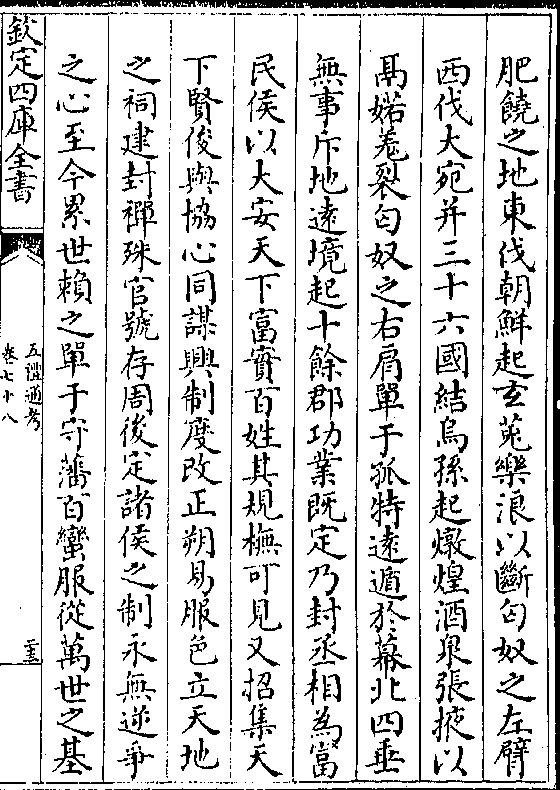 肥饒之地東伐朝鮮起玄菟樂浪以斷匈奴之左臂
西伐大宛并三十六國結烏孫起燉煌酒泉張掖以
鬲婼羌裂匈奴之右肩單于孤特遠遁於幕北四垂
無事斥地遠境起十餘郡功業既定乃封丞相為富
民侯以大安天下富實百姓其規橅可見又招集天
下賢俊與協心同謀興制度改正朔易服色立天地
之祠建封禪殊官號存周後定諸侯之制永無逆爭
之心至今累世賴之單于守藩百蠻服從萬世之基
欽定四庫全書
五禮通考
卷七十八